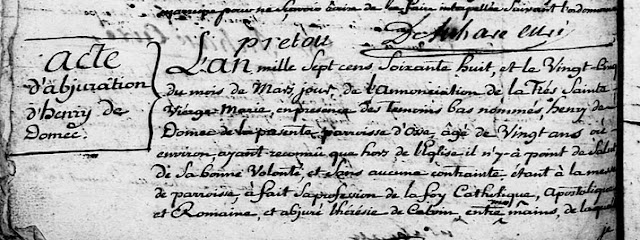 marque pour ne savoir écrire de le faire interpellé suivant l'ordonnance
pretou
acte
d'abjuration
d'henry de
Domec.
L'an mille sept cens Soixante huit, et le Vingt Cinq
du mois de Mars, jour, de l'annonciation de la Très Sainte
Vierge Marie, en présence des temoins bas nommés, henry de
Domec de la presente paroisse d'Osse, agé de Vingt ans ou
environ, ayant reconnû que hors de l'Eglise il n'y-a point de Salut
de Sa bonne Volonté, et Sans aucune contrainte étant à la messe
de paroisse, à fait Sa profession de la foy Catholique, apostolique
et Romaine, et abjuré l'hérésie de Calvin, entre mes mains, de laquelle